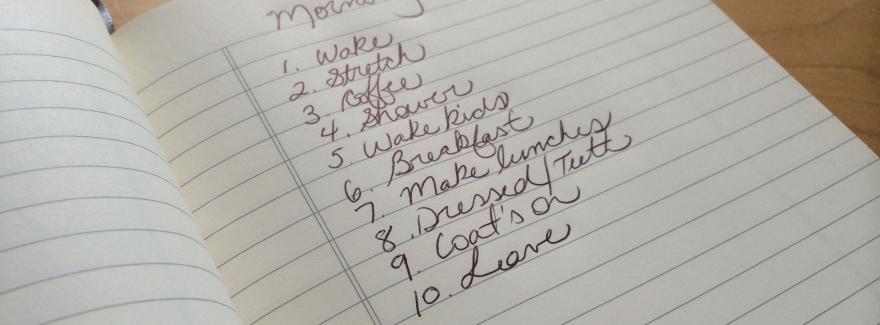 Morning
1. Wake
2. Stretch
3. Coffee
4. Shower
5. Wake kids
6. Breakfast
7. Make lunches
8. Dressed/Teeth
9. Coat's on
10. Leave